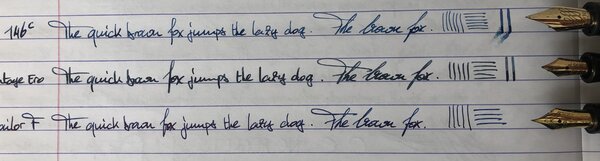 146c The quick brown fox jumps the lazy dog. The brown fox.
Ero The quick brown fox jumps the lazy dog. The brown fox.
F The quick brown fox jumps the lazy dog. The brown fox.